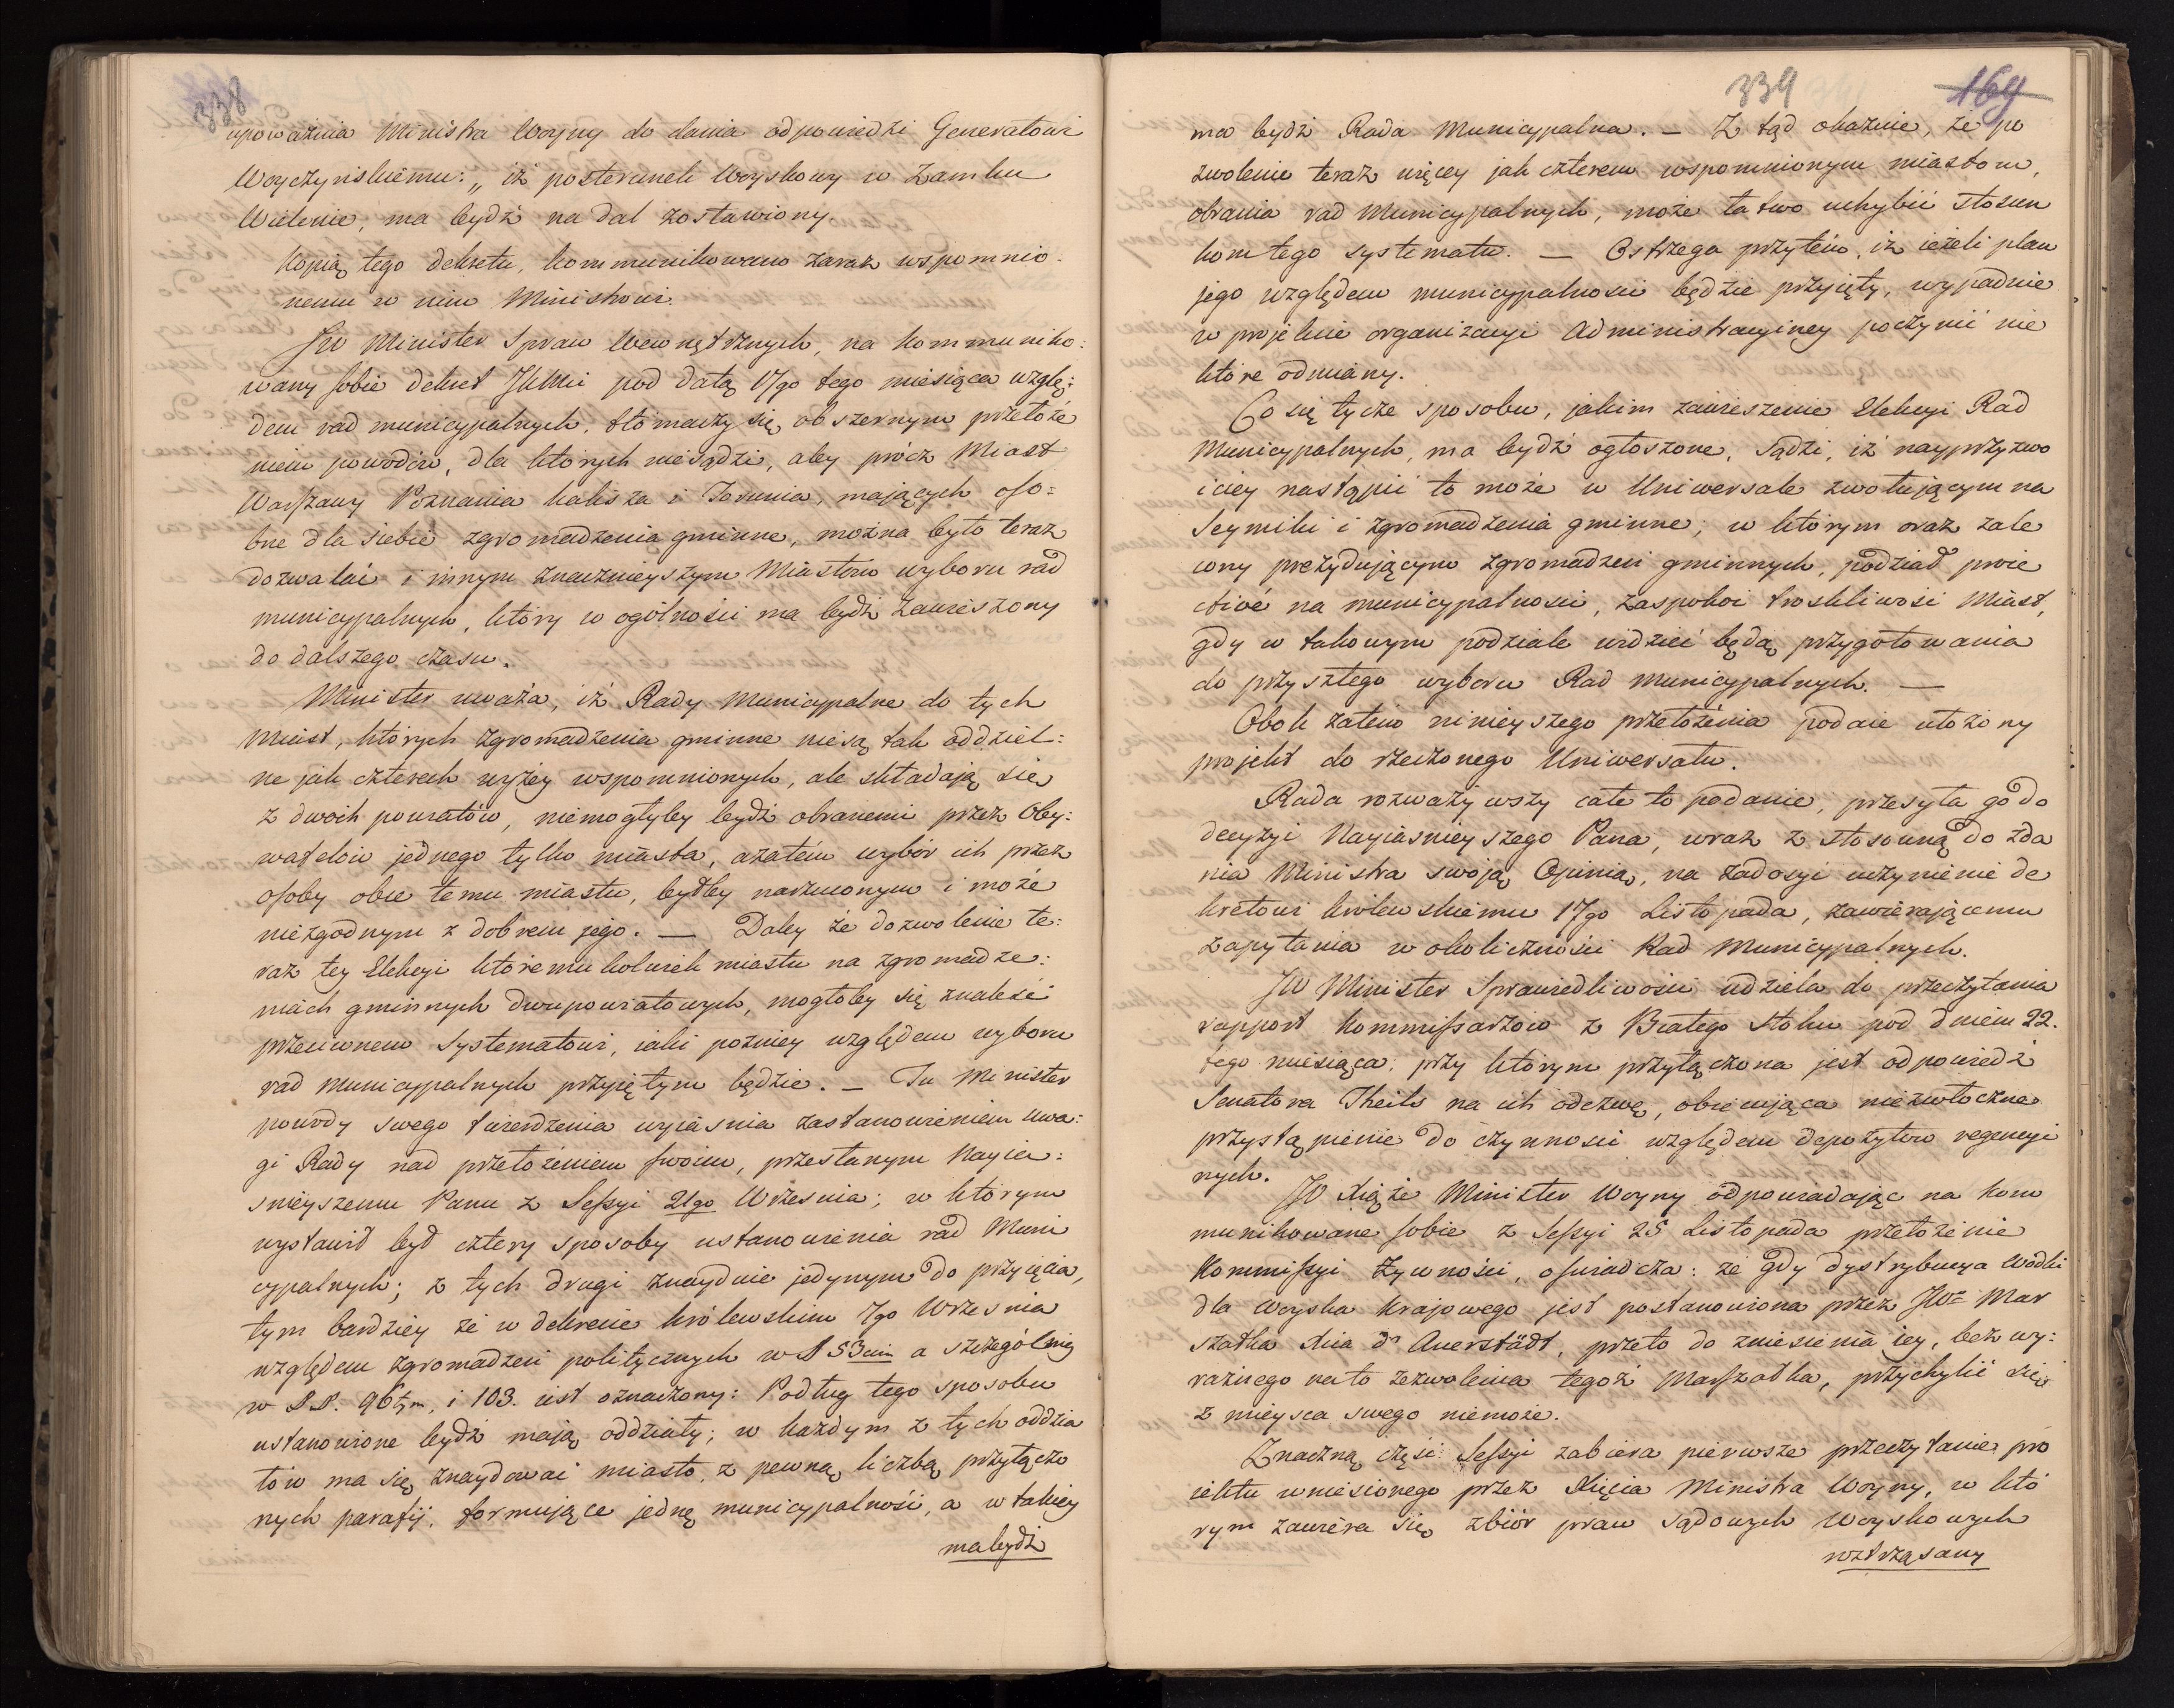 338
upoważnia Ministra Woyny do dania odpowiedzi Generałowi
Woyczyńskiemu: „ iż posterunek Woyskowy w Zamku
Wielenie, ma bydź na dal zostawiony.
Kopią tego dekretu, kommunikowano zaraz wspomnio:
nemu w nim Ministrowi.
JW Minister Spraw Wewnętrznych, na kommuniko:
wany sobie dekret JKMci pod datą 17go tego miesiąca wzglę:
dem rad municypalnych, tłómaczy się obszernym przełoże
niem powodów, dla których niesądzi, aby prócz Miast
Warszawy Poznania Kalisza i Torunia, mających oso:
bne dla siebie zgromadzenia gminne, można było teraz
dozwalać i innym znacznieyszym Miastom wyboru rad
municypalnych, który w ogólności ma bydź zawieszony
do dalszego czasu.
Minister uważa, iż Rady Municypalne do tych
Miast, których zgromadzenia gminne niesą tak oddziel:
ne jak czterech wyżey wspomnionych, ale składają się
z dwóch powiatów, niemogłyby bydź obranemi przez Oby:
watelów jednego tylko miasta, azatém wybór ich przez
osoby obce temu miastu, byłby narzuconym i może
niezgodnym z dobrem jego. — Daley że dozwolenie te:
raz tey Elekcyi któremukolwiek miastu na zgromadze:
niach gminnych dwupowiatowych, mogłoby się znaleść
przeciwnem Systematowi, iaki pozniey względem wyboru
rad Municypalnych przyiętym będzie. — Tu Minister
powody swego twierdzenia wyiaśnia zastanowieniem uwa:
gi Rady nad przełożeniem swoim, przesłanym Nayia:
śnieyszemu Panu z Sessyi 21go Września; w którym
wystawił był cztery sposoby ustanowienia rad Muni
cypalnych; z tych drugi znayduie jedynym do przyięcia,
tym bardziey że w dekrecie królewskim 7go Września
względem zgromadzeń politycznych w § 53cim a szczególniey
w §§. 96tym, i 103. iest oznaczony: Podług tego sposobu
ustanowione bydź mają oddziały; w każdym z tych oddzia
łów ma się znaydować miasto, z pewną liczbą przyłączo
nych parafij, formujące jedną municypalność, a w takiey
ma bydź
339 169
ma bydź Rada Municypalna. — Z tąd okazuie, że po
zwolenie teraz więcey jak czterem wspomnionym miastom,
obrania rad Municypalnych, może łatwo uchybić stosun
kom tego systematu. — Ostrzega przytém, iż ieżeli plan
jego względem municypalności będzie przyięty, wypadnie
w projekcie organizacyi Administracyiney poczynić nie
które odmiany.
Co się tycze sposobu, jakim zawieszenie Elekcyi Rad
Municypalnych, ma bydź ogłoszone, sądzi, iż nayprzyzwo
iciey nastąpić to może w Uniwersale zwołującym na
Seymiki i zgromadzenia gminne; w którym oraz zale
cony prezydującym zgromadzeń gminnych, podział proie
ctivé na municypalności, zaspokoi troskliwość Miast,
gdy w takowym podziale widzieć będą przygotowania
do przyszłego wyboru Rad Municypalnych. —
Obok zatém ninieyszego przełożenia podaie ułożony
projekt do rzeczonego Uniwersału.
Rada rozważywszy całe to podanie, przesyła go do
decyzyi Nayiaśnieyszego Pana, wraz z stosowną do zda
nia Ministra swoją Opinią, na zadosyć uczynienie de
kretowi królewskiemu 17go Listopada, zawierającemu
zapytania w okoliczności Rad Municypalnych.
JW Minister Sprawiedliwości udziela do przeczytania
rapport Kommissarzów z Białego Stoku pod dniem 22.
tego miesiąca, przy którym przyłączona jest odpowiedź
Senatora Theils na ich odezwę, obiecująca niezwłoczne
przystąpienie do czynności względem depozytów regencyi
nych.
JO Xiąże Minister Woyny odpowiadając na kom
munikowane sobie z Sessyi 25 Listopada przełożenie
Kommissyi Żywności, oświadcza: że gdy dystrybucya wódki
dla Woyska krajowego jest postanowiona przez JWo Mar
szałka Xcia d' Auerstädt, przeto do zniesienia iey, bez wy:
raźnego na to zezwolenia tegoż Marszałka, przychylić się
z mieysca swego niemoże.
Znaczną część Sessyi zabiera pierwsze przeczytanie pro
iektu wniesionego przez Xięcia Ministra Woyny, w któ
rym zawiera się zbiór praw sądowych Woyskowych
roztrząsany